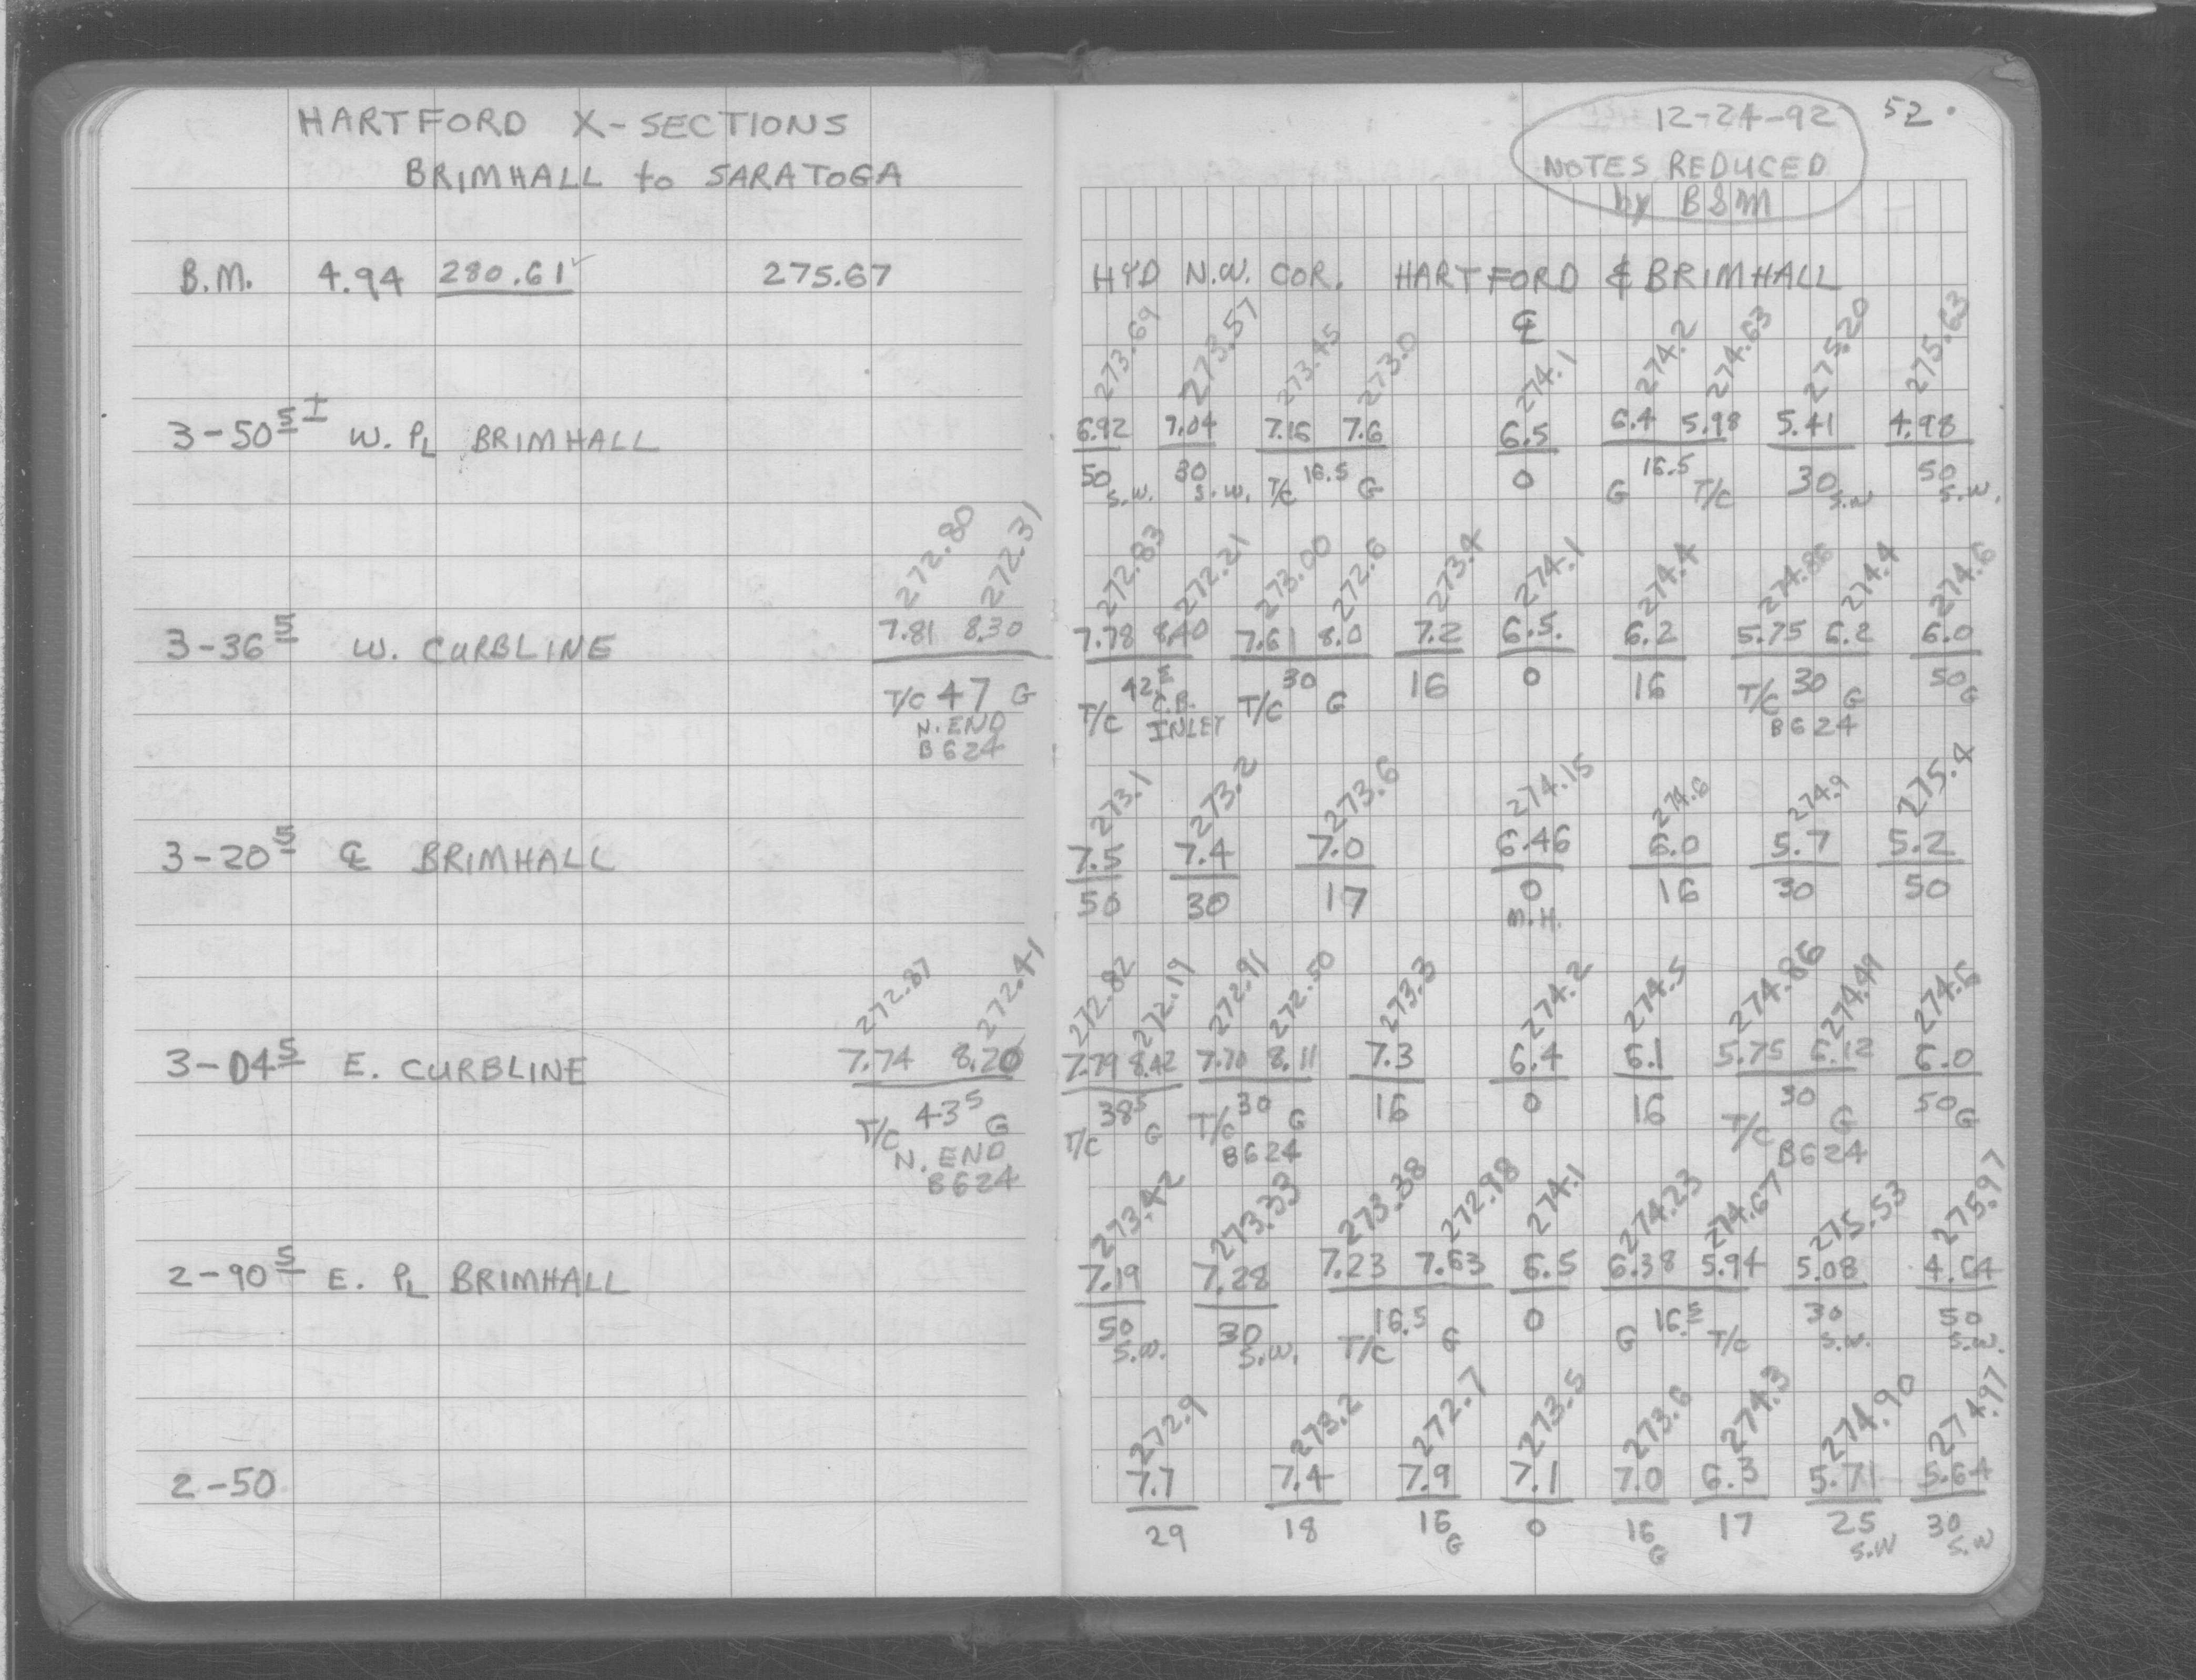 HARTFORD X-SECTIONS
BRIMHALL to SARATOGA
B.M. 4.94 280.61 ✓ 275.67
3-50 5 ± W. PL BRIMHALL
272.80 272.31
3-36 5 W. CURBLINE 7.81 8.30
T/C 47 G
N. END
B624
3-20 5 ℄ BRIMHALL
272.87 272.41
3-04 5 E. CURBLINE 7.74 8.20
T/C 43 5 G
N. END
B624
2-90 5 E. PL BRIMHALL
2-50
12-24-92 52.
NOTES REDUCED
by BSM
HYD N.W. COR. HARTFORD & BRIMHALL
℄
273.69 273.57 273.45 273.0 274.1 274.2 274.63 275.20 275.63
6.92 7.04 7.16 7.6 6.5 6.4 5.98 5.41 4.98
50 S.W. 30 S.W. T/C 16.5 G 0 G 16.5 T/C 30 S.W 50 S.W.
272.83 272.21 273.00 272.6 273.4 274.1 274.4 274.86 274.4 274.6
7.78 8.40 7.61 8.0 7.2 6.5. 6.2 5.75 6.2 6.0
T/C 42 5 C.B. T/C 30 G 16 0 16 T/C 30 G 50 G
INLET B624
273.1 273.2 273.6 274.15 274.6 274.9 275.4
7.5 7.4 7.0 6.46 6.0 5.7 5.2
50 30 17 0 16 30 50
M.H.
272.82 272.19 272.91 272.50 273.3 274.2 274.5 274.86 274.49 274.6
7.79 8.42 7.70 8.11 7.3 6.4 6.1 5.75 6.12 6.0
T/C 38 5 G T/C 30 G 16 0 16 T/C 30 G 50 G
B624 B624
273.42 273.33 273.38 272.98 274.1 274.23 274.67 275.53 275.97
7.19 7.28 7.23 7.63 6.5 6.38 5.94 5.08 4.64
50 S.W. 30 S.W. T/C 16.5 G 0 G 16.5 T/C 30 S.W. 50 S.W.
272.9 273.2 272.7 273.5 273.6 274.3 274.90 274.97
7.7 7.4 7.9 7.1 7.0 6.3 5.71 5.64
29 18 16 G 0 16 G 17 25 S.W 30 S.W